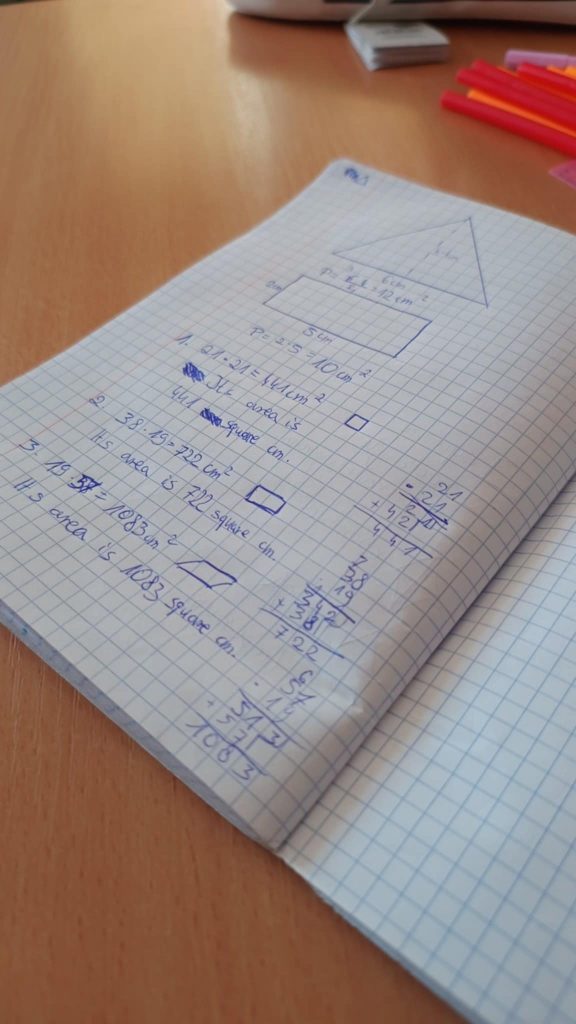 6cm
= 12cm²
5cm
P = 2·5 = 10cm²
1. 21·21 = 441cm²
Its area is
441 square cm.
2. 38·19 = 722cm²
Its area is 722 square cm.
3. 19·57 = 1083cm²
Its area is 1083 square cm.
21
· 21
21
+ 42
441
722
57
· 19
513
+ 57
1083